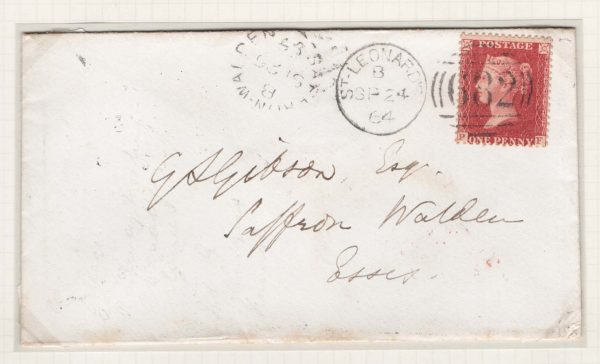 SAFFRON-WALDEN
B
ST-LEONARDS
B
SP 24
64
POSTAGE
632
ONE PENNY
G S Gibson, Esq.
Saffron Walden
Essex.